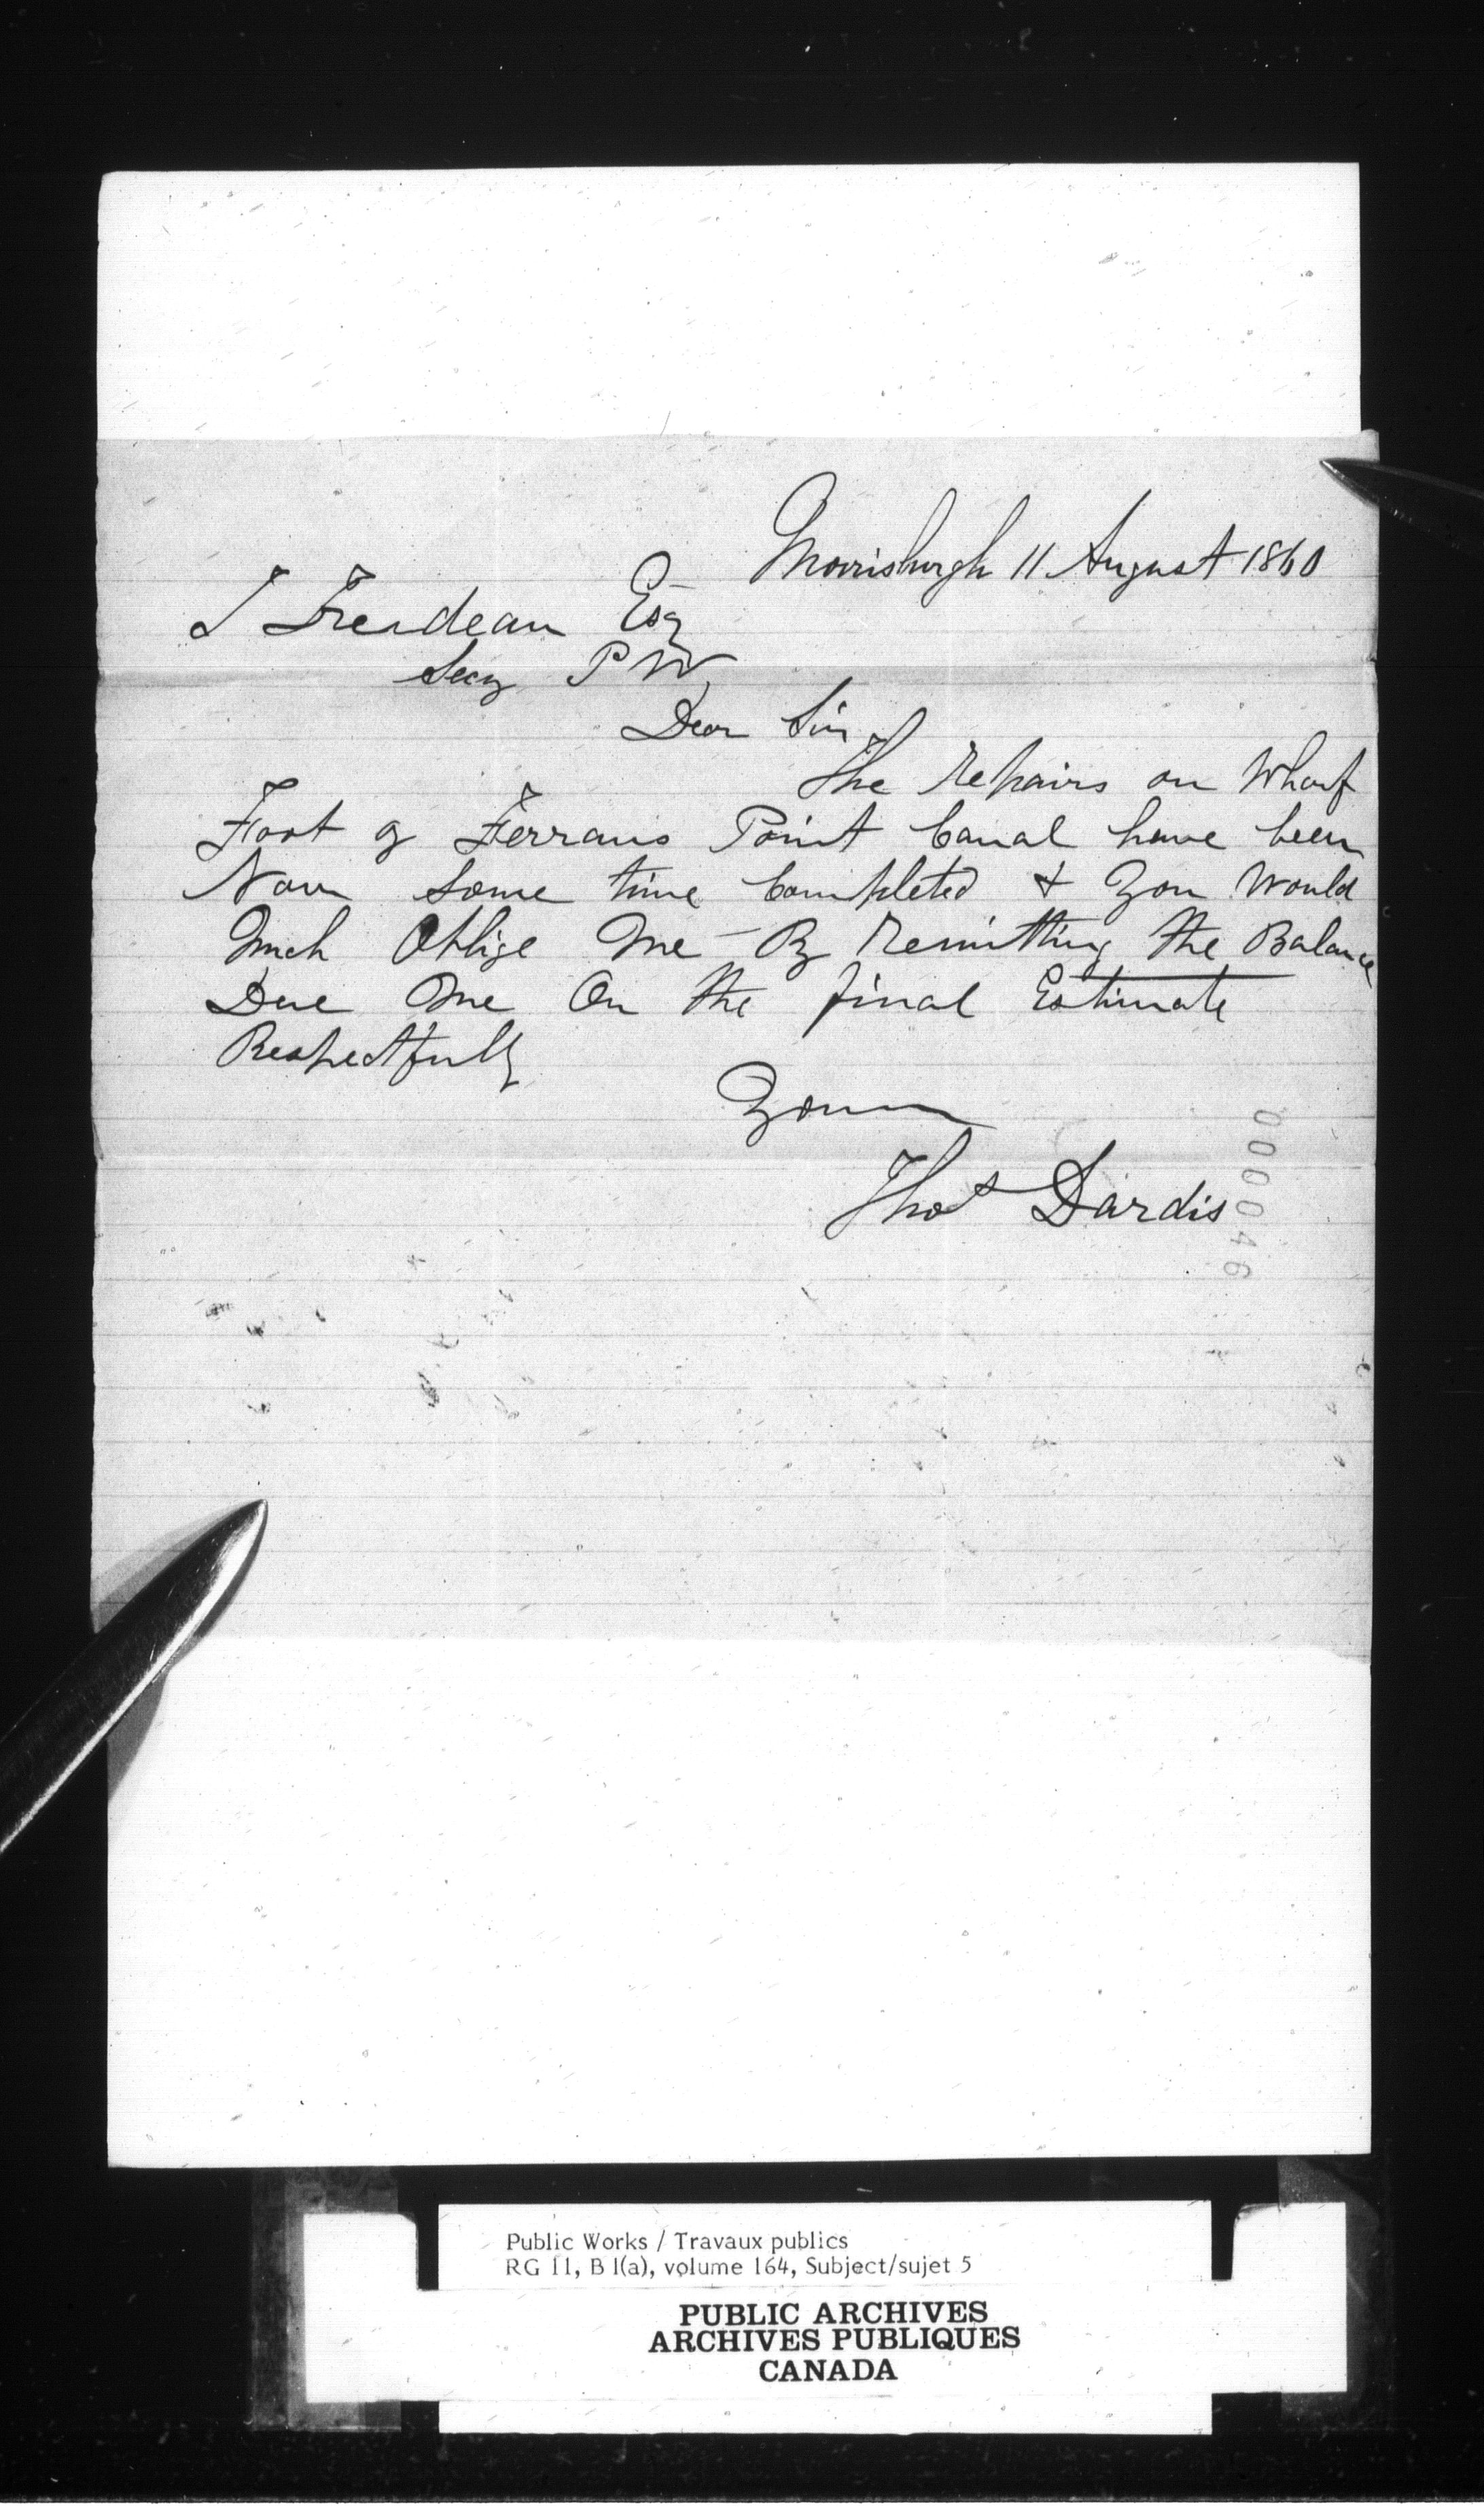 Morrisburgh 11 August 1860
T Trudeau Esq
Secy P W
Dear Sir
The repairs on Wharf
Foot of Ferrans Point Canal have been
Now some time Completed & You Would
Much Oblige Me By Remitting the Balance
Due Me On the final Estimate
Respectfully
Yours
Thos Dardis
000046
Public Works / Travaux publics
RG 11, B 1(a), volume 164, Subject/sujet 5
PUBLIC ARCHIVES
ARCHIVES PUBLIQUES
CANADA